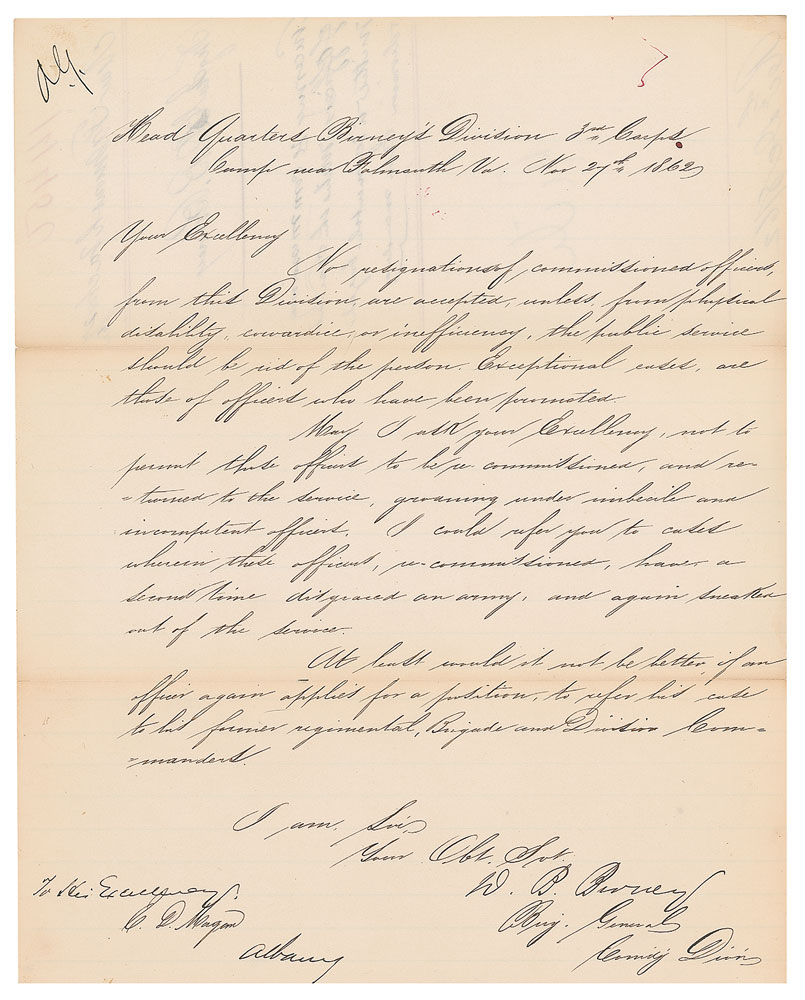 A.G.
Head Quarters Birney's Division 3rd Corps
Camp near Falmouth Va. Nov 27th 1862
Your Excellency
No resignations of commissioned officers,
from this Division, are accepted, unless, from physical
disability, cowardice, or inefficiency, the public service
should be rid of the person. Exceptional cases, are
those of officers who have been promoted.
May I ask your Excellency, not to
permit those officers to be re-commissioned, and re-
=turned to the service, groaning under imbecile and
incompetent officers. I could refer you to cases
wherein these officers, re-commissioned, have a
second time disgraced an army, and again sneaked
out of the service.
At least would it not be better, if an
officer again applies for a position, to refer his case
to his former regimental, Brigade and Division Com=
=manders.
I am, Sir,
Your Obt. Svt.
D. B. Birney
Brig. General
Comdg Divn
To His Excellency.
E. D. Morgan
Albany